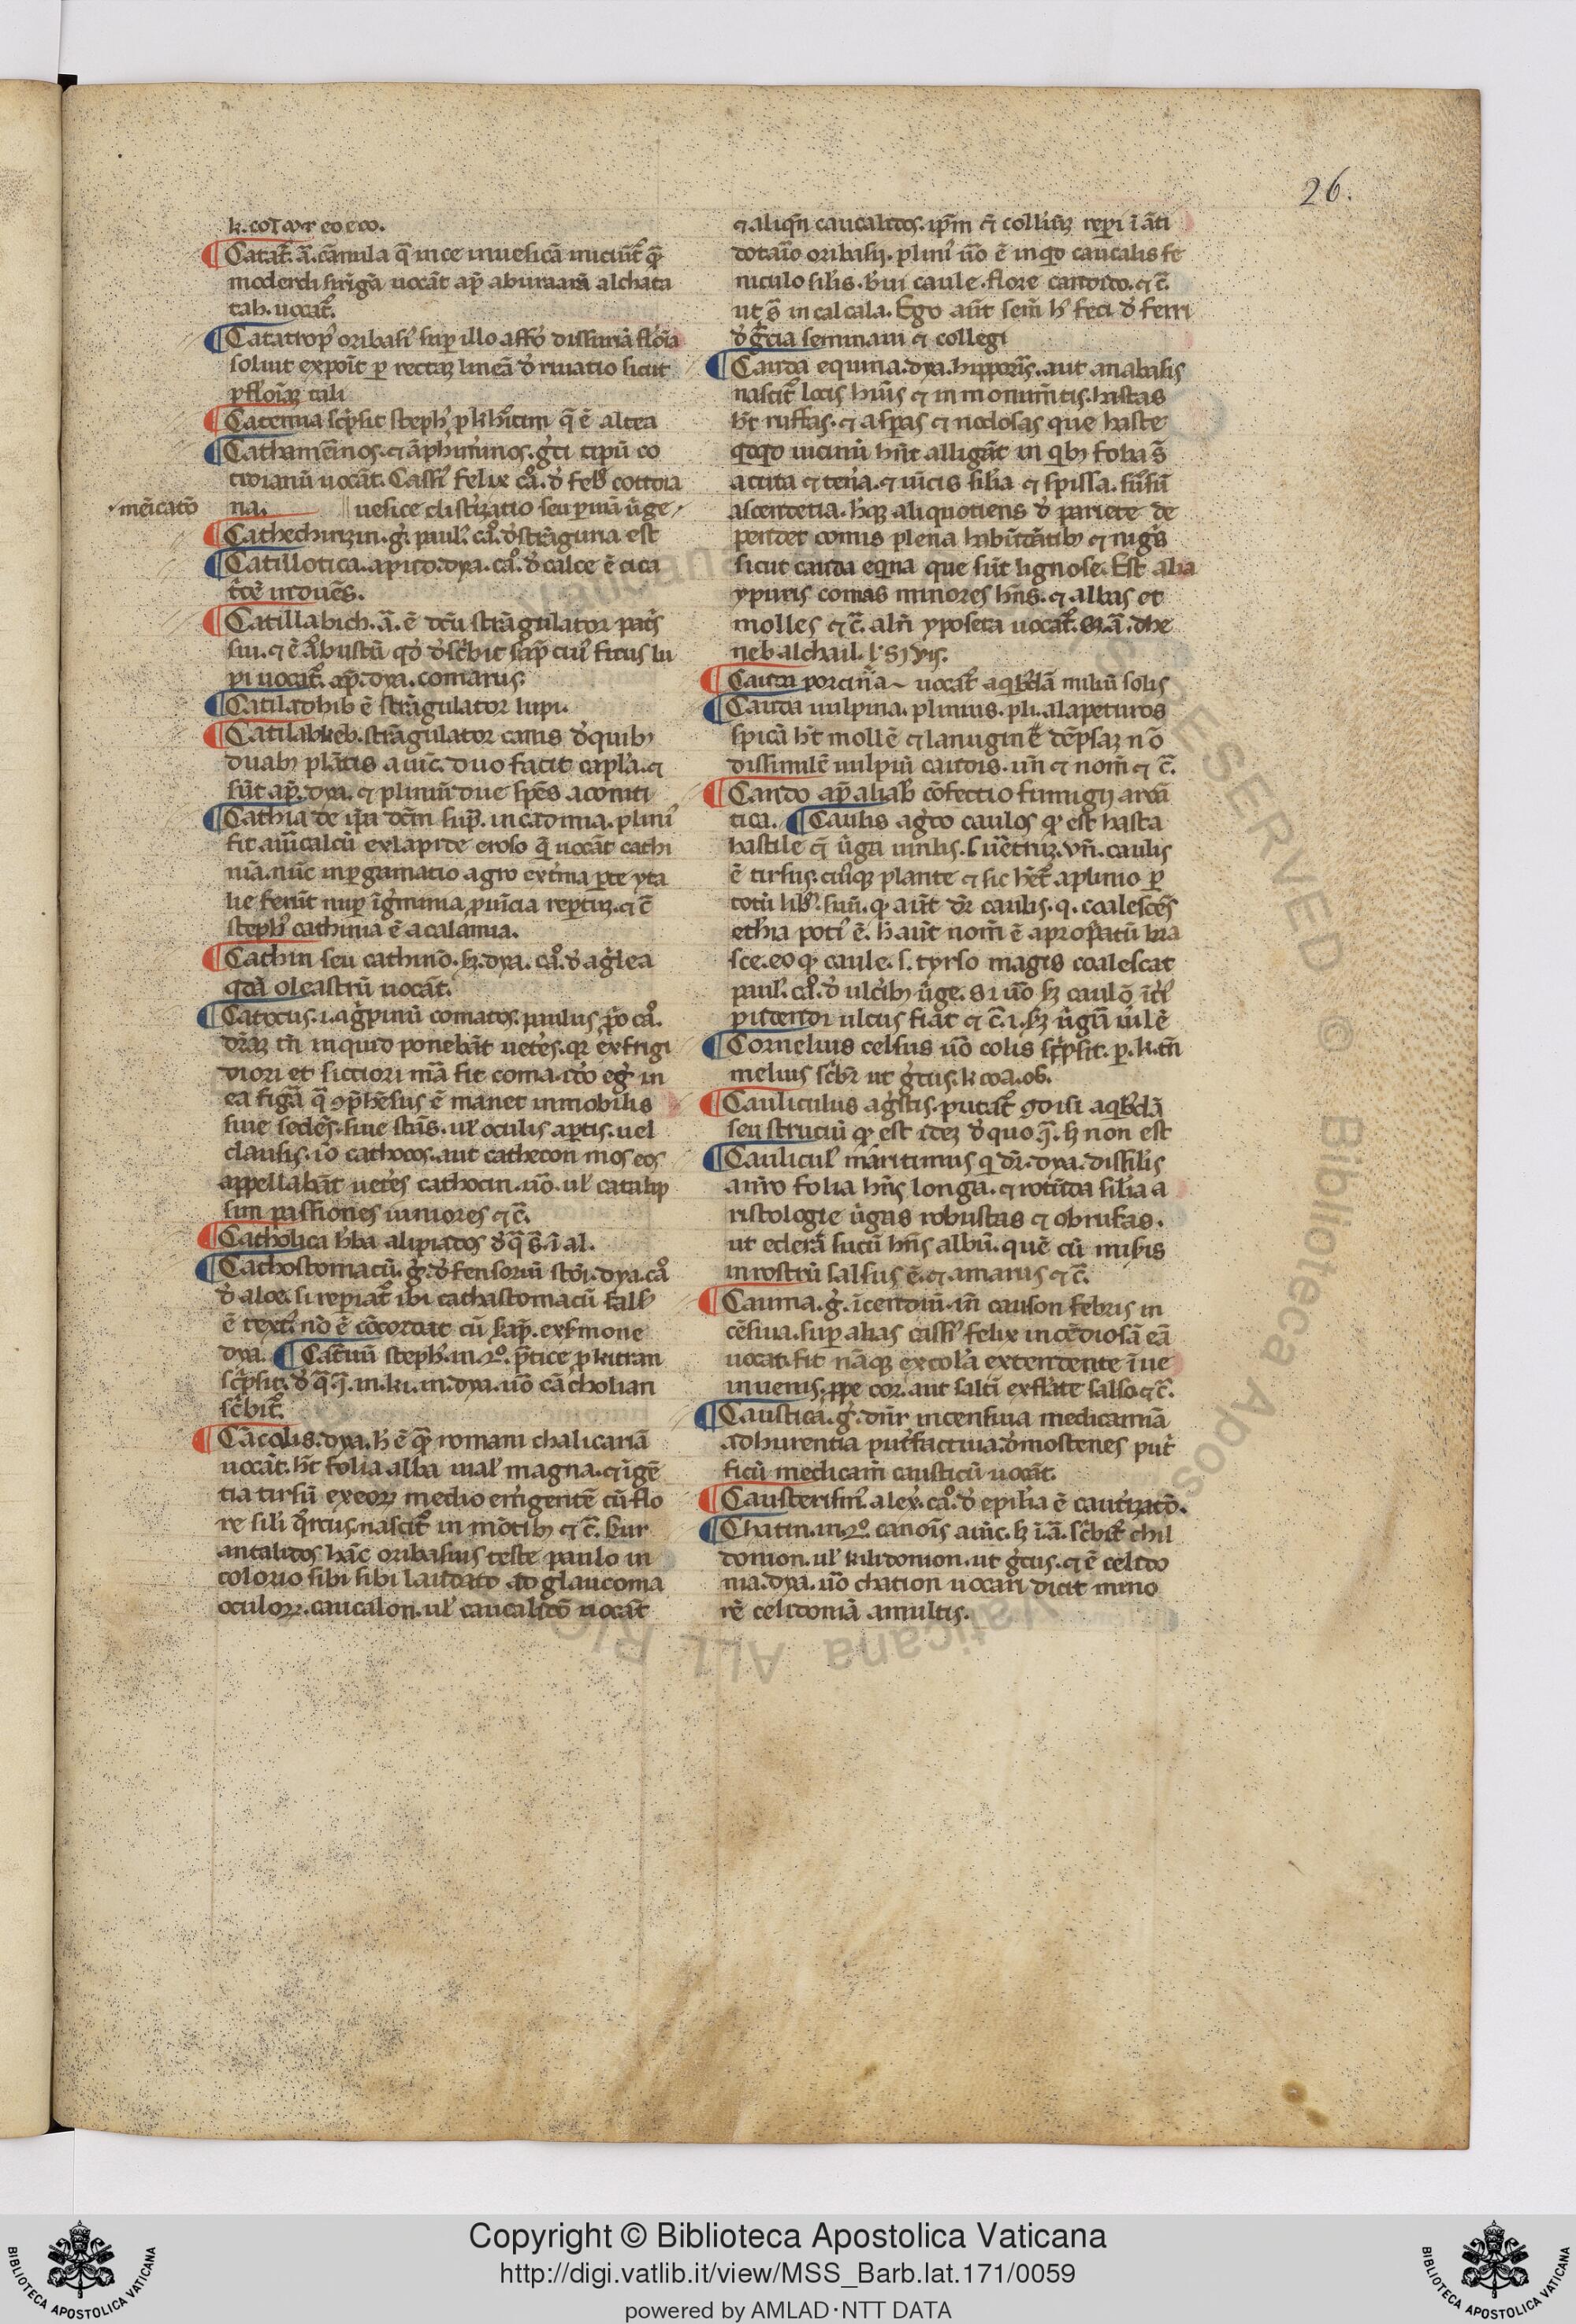 26.
k. coτωτ eo e co.
Catat̃. a͞. cãnula q̃ in ce in uesicã iniciũt̃ q̃
moderni siringã uocãt ap̃ aburaarã alchata
tab. uocat̃.
Catatrop̾ oribasi̾ sup illo affo̾ dissuriã flõia
soluit exponit̃ per rectaȝ lineã d̾riuatio sicut
p flõiaȝ tali
Catenia sc̾psit steph̾ p khitim q̃ ẽ altea
Cathamẽinos. ⁊ ãphiminos. g̾ci tipũ co
tidianũ uocãt. Cassi̾ felix ca̾. d̾ feb̾ cottidia
na. uesice clist̾izatio seu p̃mã uirge
mẽicatõ
Cathechirizin. g̾. paul̾. ca̾. d̾ strãguria est
Catillotica. apud. dya. ca̾. d̾ calce ẽ cica
t̾cẽ inducẽs.
Catillabich. a͞. ẽ dc̃u strãgulator pat̾s
sui. ⁊ ẽ arbustũ qd̾ d̾sc̾bit̃ sup̃ cui̾ ficus lu
pi uocat̃. ap̃. dya. comarus.
Catiladhib ẽ strãgulator lupi.
Catilalkeb. strãgulator canis d̾ quibȝ
duabȝ plãtis auic̃. duo facit capl̾a. ⁊
sũt ap̃. dya. ⁊ pliniũ due sp̃es aconiti
Cathia de qua dc̃m sup̃. in cadmia. plini̾
fit auricalcũ ex lapide eroso q̃ uocãt cathi
miã. nũc in pgamatio agro extrema p̃te yta
lie ferũt nup ĩ g̾mania puĩcia repertuȝ. ⁊ c̃
steph̾ cathimia ẽ acalamia.
Cathin seu cathinõ. sȝ. dya. ca̾. d̾ ag̾lea
qdã oleastrũ uocãt.
Catocus. i. ag̾pinũ comatos. paulus p̃o ca̾.
inquid ponebãt uet̾es. qr ex frigi
diori et sicciori mã fit coma. ido eg̾ in
ea figã q̃ ꝯp̃hẽsus ẽ manet inmobilis
siue sedẽs. siue stãs. ul̾ oculis ap̃tis. uel
clausis. io̾ cathocos. aut cathecon mos eos
appellabãt uet̾es cathocin. ũo. ul̾ catalip
sim passiones iuniores ⁊ c̃.
Catholica h̾ba alipiados d̾ q̃ s̃. ĩ al.
Cathostomacũ. g̾. d̾fensoriũ stoi̾. dya. ca̾
d̾ aloe. si repiat̃ ibi cathastomacũ fals̾
ẽ text̾. nõ ẽ cõcordat cũ sup̃. ex s̾mone
dya. Catinũ steph̾. in. 2o. p̃tice p kitran
sc̾psit. d̾ q̃. ĩ. in. ki. in. dya. ũo cãcholian
sc̾bit̃.
Cãcolis. dya. h̾ ẽ q̃ romani chalicariã
uocãt. h̃t folia alba ual̾ magna. ⁊ ĩgẽ
tia tirsũ ex eoꝝ medio em̾gentẽ cũ flo
re sil̾i q̾rcus. nascit̃ in mõtibȝ ⁊ c̃. kur
antalidos hãc oribasius teste paulo in
colorio sibi sibi laudato ad glaucoma
oculoꝝ. caucalon. ul̾ caucalidõ uocãt
⁊ aliqñ caucalidos. ipm̃ ⁊ colliriuȝ repi ĩ ãti
dotario oribasij. plini̾ ũo ẽ inqd̾ caucalis fe
niculo silis. b̾ui caule. flore candido. ⁊ c̃.
ut s̃ in calcala. Ego aũt sem̃ h̾ feci d̾ ferri
d̾ g̾cia seminaui ⁊ collegi
Cauda equina. dya. hipporis. aut anabasis
nascit̃ locis hũis ⁊ in monumẽtis. hastas
h̃t ruffas. ⁊ asp̃as ⁊ nodosas que haste
qoqd̾ uicinũ hñt alligãt in qibȝ folia s̃
acuta ⁊ tenia. ⁊ uĩcis silia ⁊ spissa. su̾sũ
ascendetia. hecȝ aliquotiens d̾ pariete de
pendet comis plena habũdãtibȝ ⁊ nig̾s
sicut cauda eqina que sũt lignose. Est alia
ypuris comas minores hñs. ⁊ albas et
molles ⁊ c̃. alñ yposeta uocat̃. sȝ. a͞. dhe
neb alchail. l̾ s yis.
Cauda porcina uocat̃ a qb̾dã miliũ solis
Cauda uulpina. plinius. pli. alapeturos
spicã h̃t mollẽ ⁊ lanuginẽ dẽpsaȝ nõ
dissimilẽ uulpiũ caudis. uñ ⁊ nom̃ ⁊ c̃.
Caudo ap̃ alhab̾ cõfectio fumigij aroã
tica. Caulis ag̾co caulos qp̾ est hasta
hastile ⁊ uirga uirilis. s ueretruȝ. vñ. caulis
ẽ tirsus. cuiꝰqȝ plante ⁊ sic het̃ a plinio p
totũ lib̾. suũ. qp̾ aũt dr̃ caulis. q. coalescẽs
eth̾ia poti̾ ẽ. h̾ aũt nom̃ ẽ apropiatũ bra
sce. eo qp̾ caule. s. tyrso magis coalescat
paul̾. ca̾. d̾ ulc̾ibȝ uirge. si ũo sȝ caulõ ĩti̾
pudendi ulcus fiãt ⁊ c̃. i. sȝ uirgũ uirilẽ
Cornelius celsus ũo colis sc̾psit. p. k. tm̃
melius sc̾br̃ ut g̾cus. k coa. ob.
Cauliculus ag̾stis. putat̃ gdisi a qb̾dã
seu struciũ qp̾ est ideȝ d̾ quo q̃. h̾ non est
Caulicul̾ maritimus q dr̃. dya. dissil̾is
aũro folia hñs longa. ⁊ rotũda silia a
ristologie uirgas robustas ⁊ obrufas.
ut ederã sucũ hñs albũ. quẽ cũ mixis
in rostrũ salsus ẽ. ⁊ amarus ⁊ c̃.
Cauma. g̾. ĩcendiũ. iñ causon febris in
cẽsiua. sup alias cassi̾ felix incẽdiosã eã
uocat. fit nãqȝ ex col̾a extendente ĩ ue
in uenis. ppe cor. aut saltĩ ex flate salso ⁊ c̃.
Caustica. g̾. dñr incensiua medicamiã
adhurentia put̾factiua. d̾mostenes put̾
ficũ medicam̃ causticũ uocãt.
Causterism̾. alex̾. ca̾. d̾ epil̾ia ẽ caut̾izatõ.
Chatin. in. 2o. canois̃ auic̃. sȝ ĩ. a͞. sc̾bit̃ chil
donion. ul̾ kilidonion. ut g̾cus. ⁊ ẽ celido
nia. dya. ũo chation uocari dicit mino
rẽ celidoniã a multis.
Copyright © Biblioteca Apostolica Vaticana
http://digi.vatlib.it/view/MSS_Barb.lat.171/0059
powered by AMLAD·NTT DATA
BIBLIOTECA APOSTOLICA VATICANA
BIBLIOTECA APOSTOLICA VATICANA